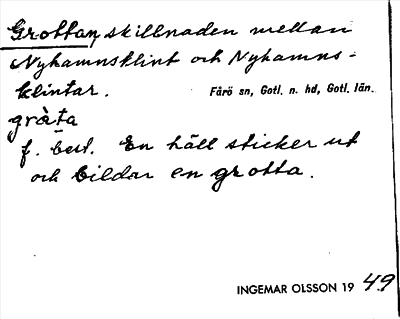 Grottan, skillnaden mellan
Nyhamnsklint och Nyhamns-
klintar. Fårö sn, Gotl. n. hd, Gotl. län.
gråta
f. best. En häll sticker ut
och bildar en grotta.
INGEMAR OLSSON 19 49